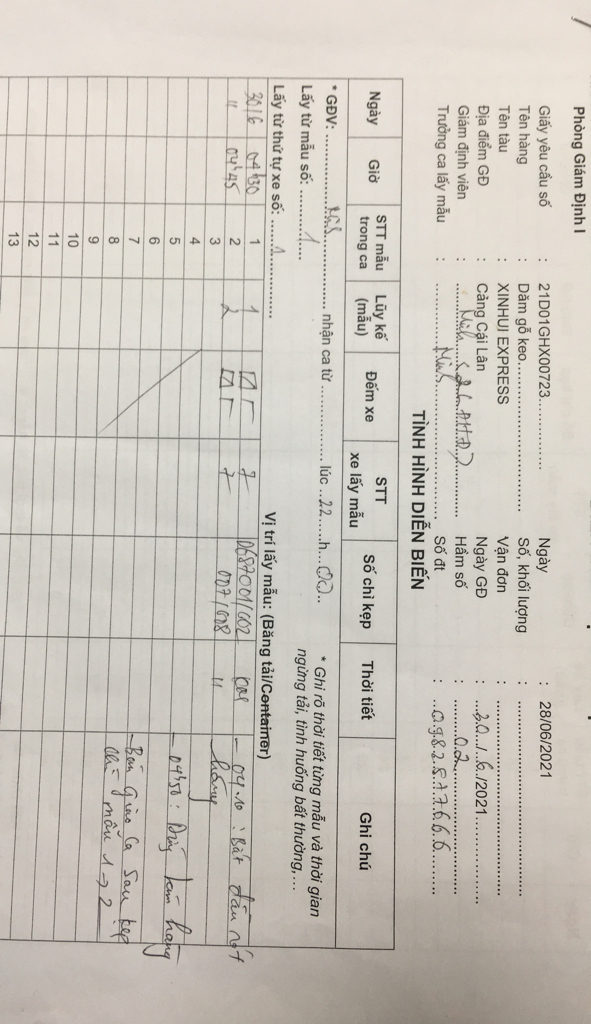 Phòng Giám Định I
Giấy yêu cầu số : 21D01GHX00723............... Ngày : 28/06/2021
Tên hàng : Dăm gỗ keo............... Số, khối lượng : ...............
Tên tàu : XINHUI EXPRESS Vận đơn : ...............
Địa điểm GĐ : Cảng Cái Lân Ngày GĐ : ...30./.6./2021...............
Giám định viên : Hầm số : ...............02...............
Trưởng ca lấy mẫu : Số đt : ...0982577666.........
TÌNH HÌNH DIỄN BIẾN
Ngày Giờ STT mẫu trong ca Lũy kế (mẫu) Đếm xe STT xe lấy mẫu Số chì kẹp Thời tiết Ghi chú
* GĐV: ............... nhận ca từ ............... lúc ...22......h...00.. * Ghi rõ thời tiết từng mẫu và thời gian
Lấy từ mẫu số: .........1...... ngừng tải, tình huống bất thường,...
Lấy từ thứ tự xe số: ......1............ Vị trí lấy mẫu: (Băng tải/Container)
30/6 04h30 1 1 7 0687001/002 - 04h10 : Bắt đầu rót
" 04h45 2 2 7 007/008 " hàng
3
4
5 - 04h50 : Dừng làm hàng
6
7 - Bàn giao ca sau kẹp
8 chì mẫu 1 → 2
9
10
11
12
13